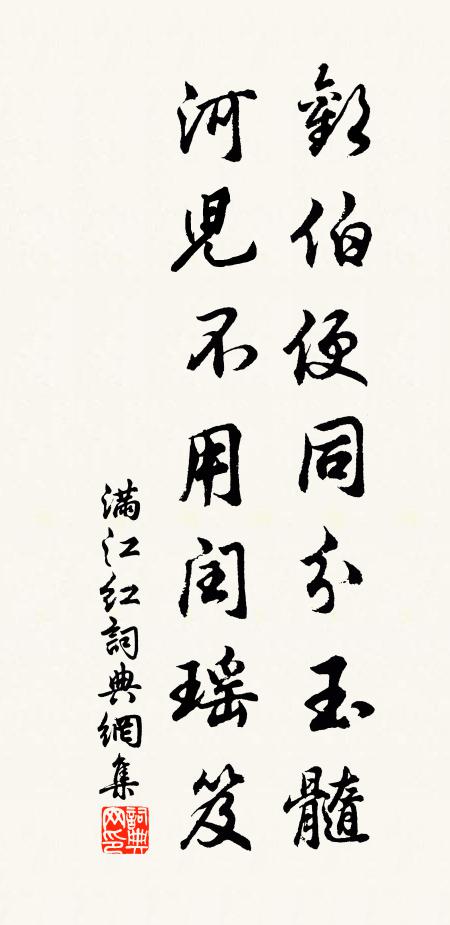 歡伯便同分玉髓
河兒不用閏瑤笈
滿江紅詞典網集
詞典網印